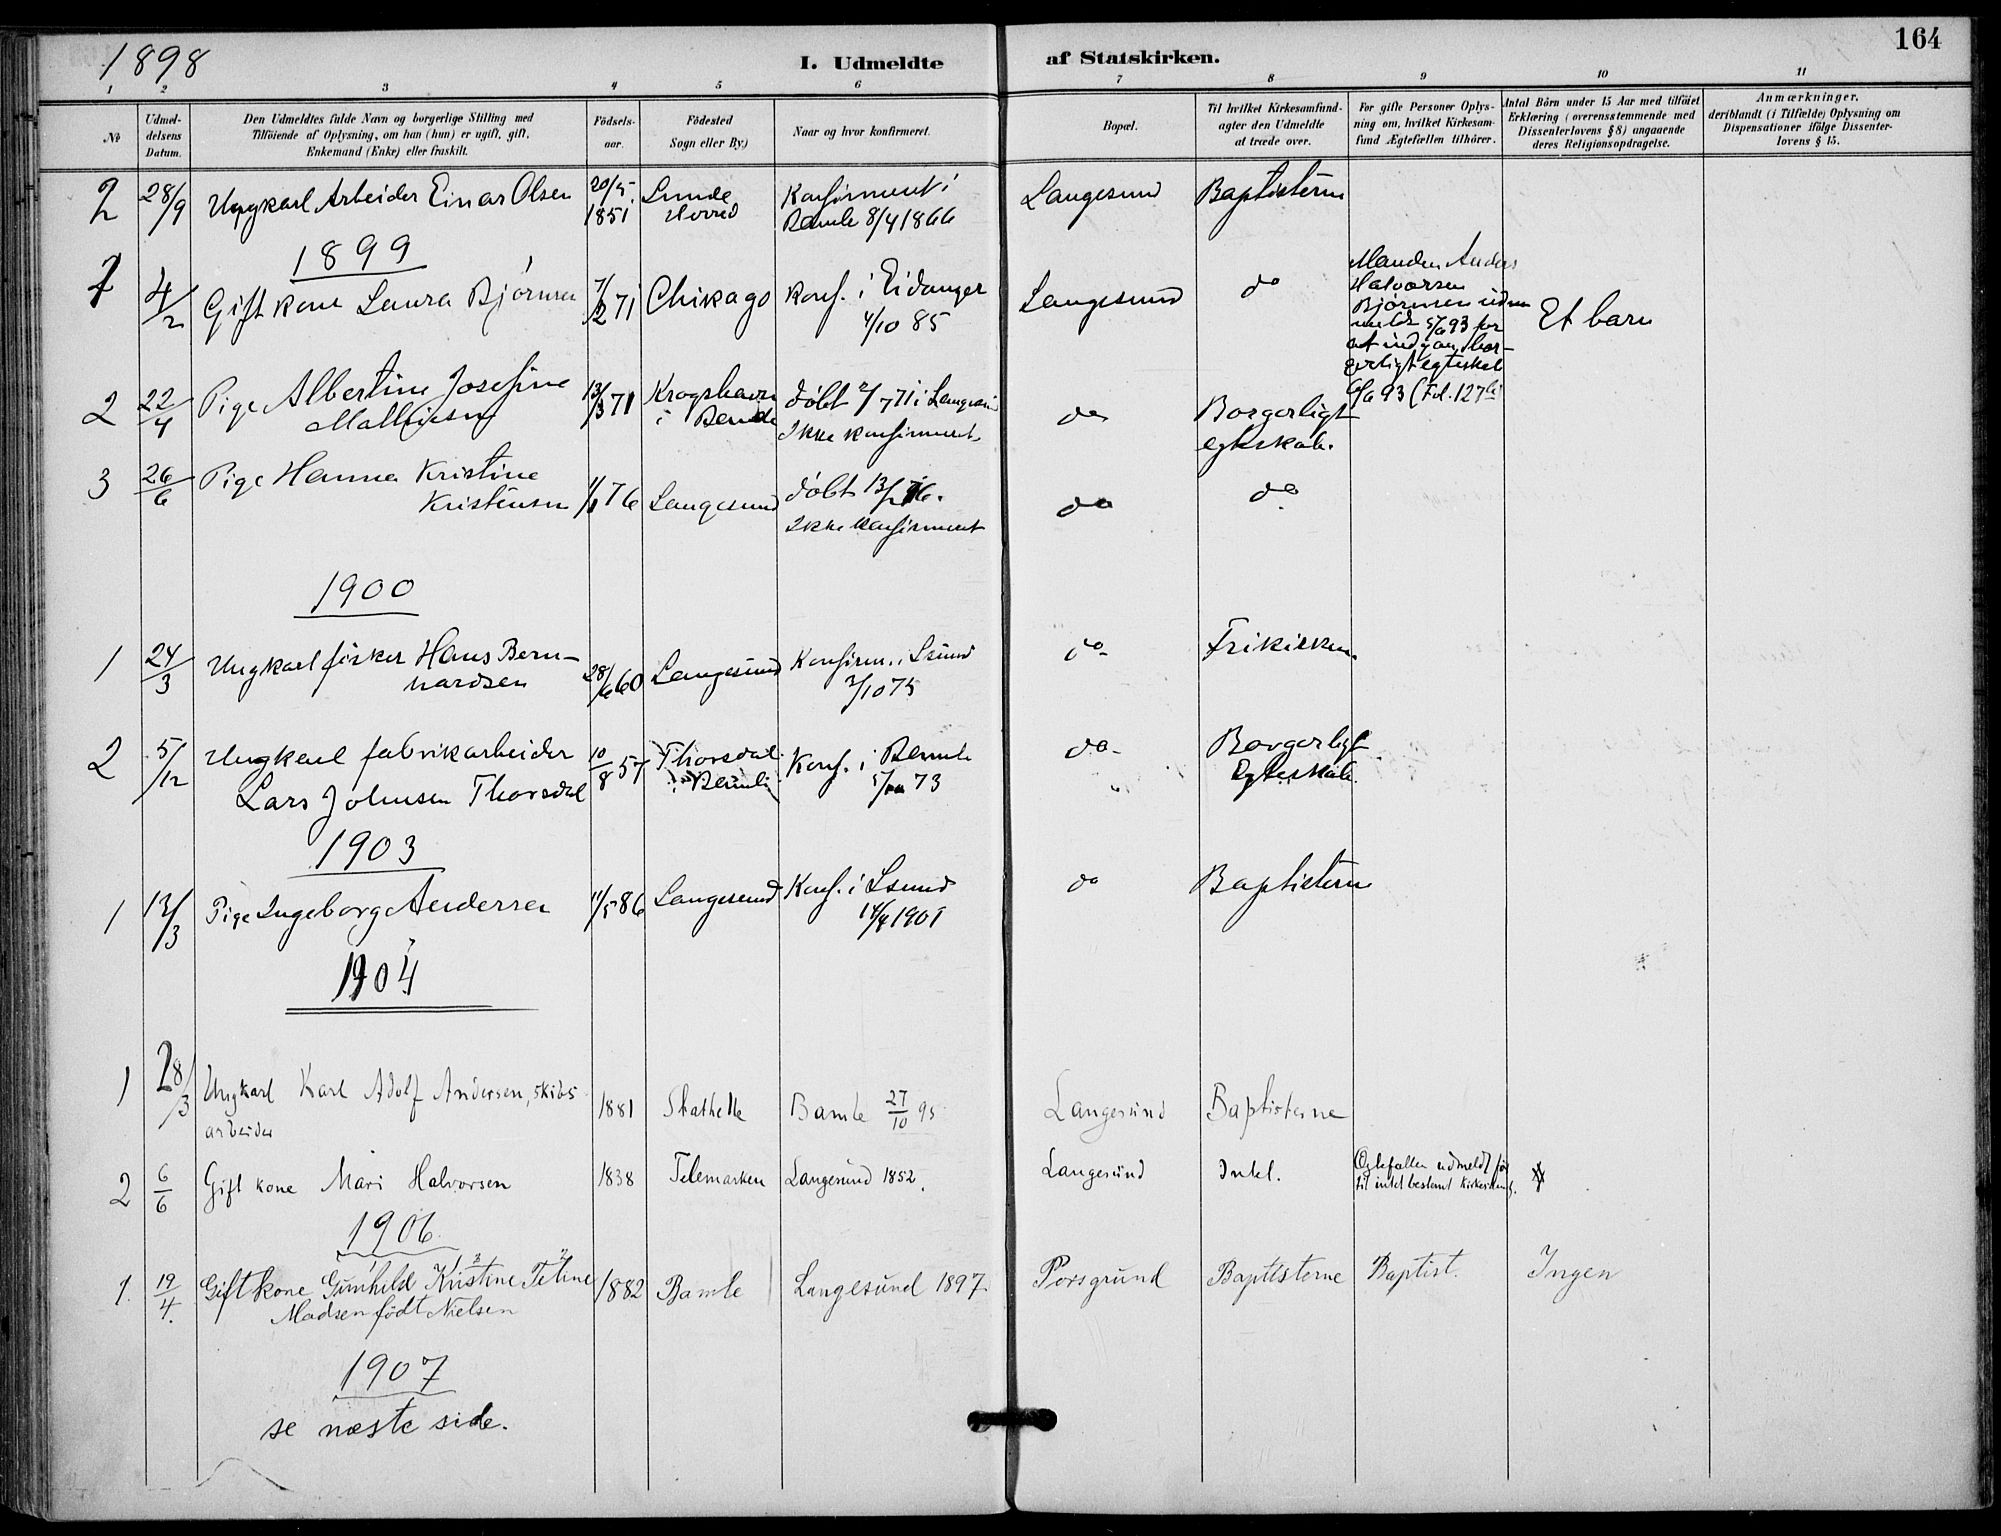 1898
I. Udmeldte af Statskirken.
164
1 2 3 4 5 6 7 8 9 10 11
No
Udmel-
delsens
Datum.
Den Udmeldtes fulde Navn og borgerlige Stilling med
Tilföiende af Oplysning, om han (hun) er ugift, gift,
Enkemand (Enke) eller fraskilt.
Födsels-
aar.
Födested
Sogn eller By.)
Naar og hvor konfirmeret.
Bopæl.
Til hvilket Kirkesamfund-
agter den Udmeldte
at træde over.
For gifte Personer Oplys-
ning om, hvilket Kirkesam-
fund Ægtefællen tilhörer.
Antal Börn under 15 Aar med tilföiet
Erklæring (overensstemmende med
Dissenterlovens § 8) angaaende
deres Religionsopdragelse.
Anmærkninger,
deriblandt (i Tilfælde) Oplysning om
Dispensationer ifölge Dissenter-
lovens § 15.
2 28/9 Ungkarl Arbeider Einar Olsen 20/5. 1851 Lunde Konfirmeret i Bamle 8/4 1866 Langesund Baptisterne
1899
1 4/2 Gift kone Laura Bjørnsen 7/2 71 Chikago Konf. i Eidanger 4/10 85 Langesund do
Manden Anders
Halvorsen
Bjørnsen udm
meldt 5/6 93 for
at indgaa bor-
gerligt egteskab
6/6 93 (Fol. 127
Et barn
2 22/4 Pige Albertine Josefine
Mathisen 13/3 71 Krogshavn i Bamle døbt 2/7 71 i Langesund
Ikke konfirmeret do Borgerligt
egteskab.
3 26/6 Pige Hanna Kristine
Kristensen 76 Langesund døbt 13/2 76.
Ikke konfirmeret do do
1900
1 24/3 Ungkarl fisker Hans Bern-
nardsen 28/6 60 Langesund Konfirm. i Lsund
3/10 75 do Frikirken.
2 5/12 Ungkarl fabrikarbeider
Lars Johnsen Thorsdal 10/8 57 Thorsdal
i Bamle Konf. i Bamle
73 do Borgerligt
Egteskab.
1903
1 13/3 Pige Ingeborg Andersen 11/5 86 Langesund Konf. i Lsund
1901 do Baptisterne
1904
1 28/3 Ungkarl Karl Adolf Andersen, skibs
arbeider 1881 Stathelle Bamle 27/10 95 Langesund Baptisterne
2 6/6 Gift kone Mari Halvorsen 1838 Telemarken Langesund 1852. Langesund Intet.
Egtefællen udmeldt før
til intet bestemt kirkesamf.
1906
1. 19/4. Gift kone Gunhild Kristine Teline
Madsen født Nielsen 1882 Bamle Langesund 1897. Porsgrund Baptisterne Baptist. Ingen
1907
se næste side.